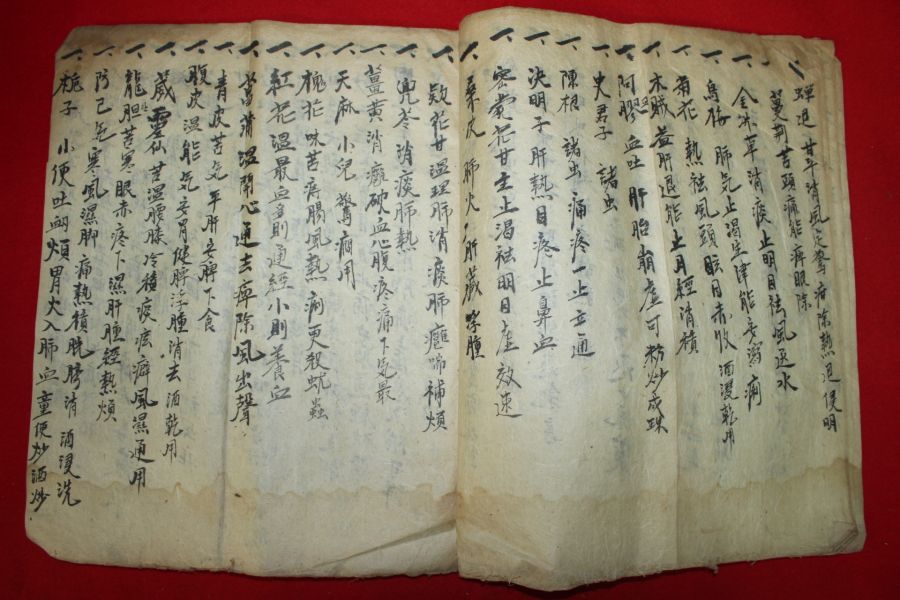 一 蟬退 甘平消風定驚 除熱退侵明
一 蔓荊苦頭痛能痺眼除
一 金沸草消痰止明目祛風逐水
一 烏梅 肺气止渴生津能安瀉痢
一 菊花 熱祛風頭眩目赤收 酒浸乾用
一 木賊益肝退能止月經消積
一 阿膠血吐 肝胎崩虛可粉炒成珠
一 史君子 諸虫
一 陳根 諸虫痛疼一止立通
一 決明子肝熱目疼止鼻血
一 密蒙花甘主止渴祛明目虛效速
一 桑皮 肺火 肝藏 腫
一 欵花甘溫理肺消痰肺癰喘補煩
一 兜苓消痰肺熱
一 薑黃消癰破血心腹疼痛下气最
一 天麻 小兒驚癎用
一 槐花 味苦 腸風熱痢更殺蚘蟲
一 紅花溫最血多則通經小則養血
一 菖蒲溫開心通去痺除風出聲
一 青皮苦气平肝安脾下食
一 腹皮溫能气安胃健脾浮腫消去酒乾用
一 葳靈仙苦溫腰膝冷積痰痃癖風濕通用
一 龍胆苦寒眼赤疼下濕肝腫經熱煩
一 防己气寒風濕脚痛熱積胱 消 酒浸洗
一 梔子 小便吐衂煩胃火入肺血童便炒酒炒